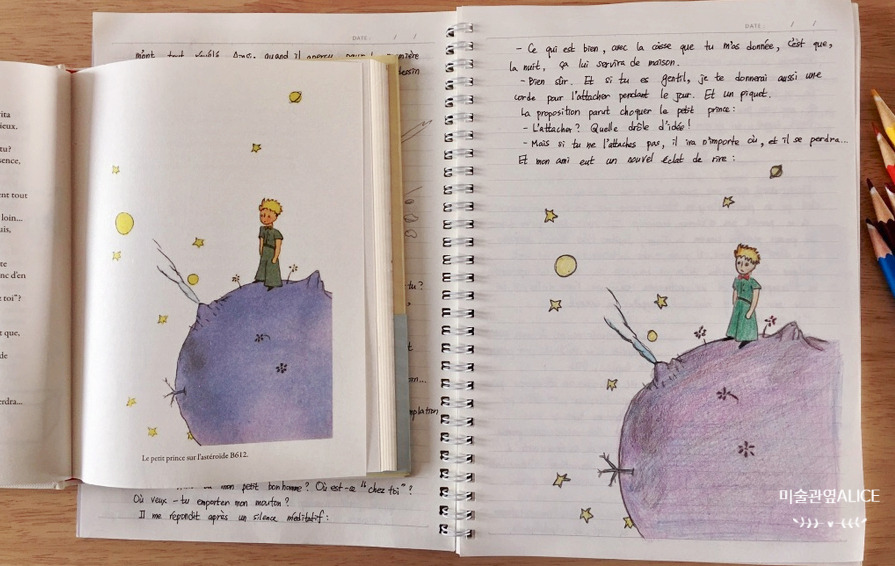 DATE : / /
m'ont tout révélé. Ainsi, quand il aperçut pour la première
dessin
rita
ieux.
tu?
sence,
ent tout
loin...
uis,
te
nc d'en
toi"?
t que,
de
erdra...
Le petit prince sur l'astéroïde B612.
tu ?
t
m...
mplation
mon petit bonhomme ? Où est-ce "chez toi" ?
Où veux-tu emporter mon mouton ?
Il me répondit après un silence méditatif :
DATE : / /
- Ce qui est bien, avec la caisse que tu m'as donnée, c'est que,
la nuit, ça lui servira de maison.
- Bien sûr. Et si tu es gentil, je te donnerai aussi une
corde pour l'attacher pendant le jour. Et un piquet.
La proposition parut choquer le petit prince :
- L'attacher ? Quelle drôle d'idée !
- Mais si tu ne l'attaches pas, il ira n'importe où, et il se perdra...
Et mon ami eut un nouvel éclat de rire :
미술관옆ALICE